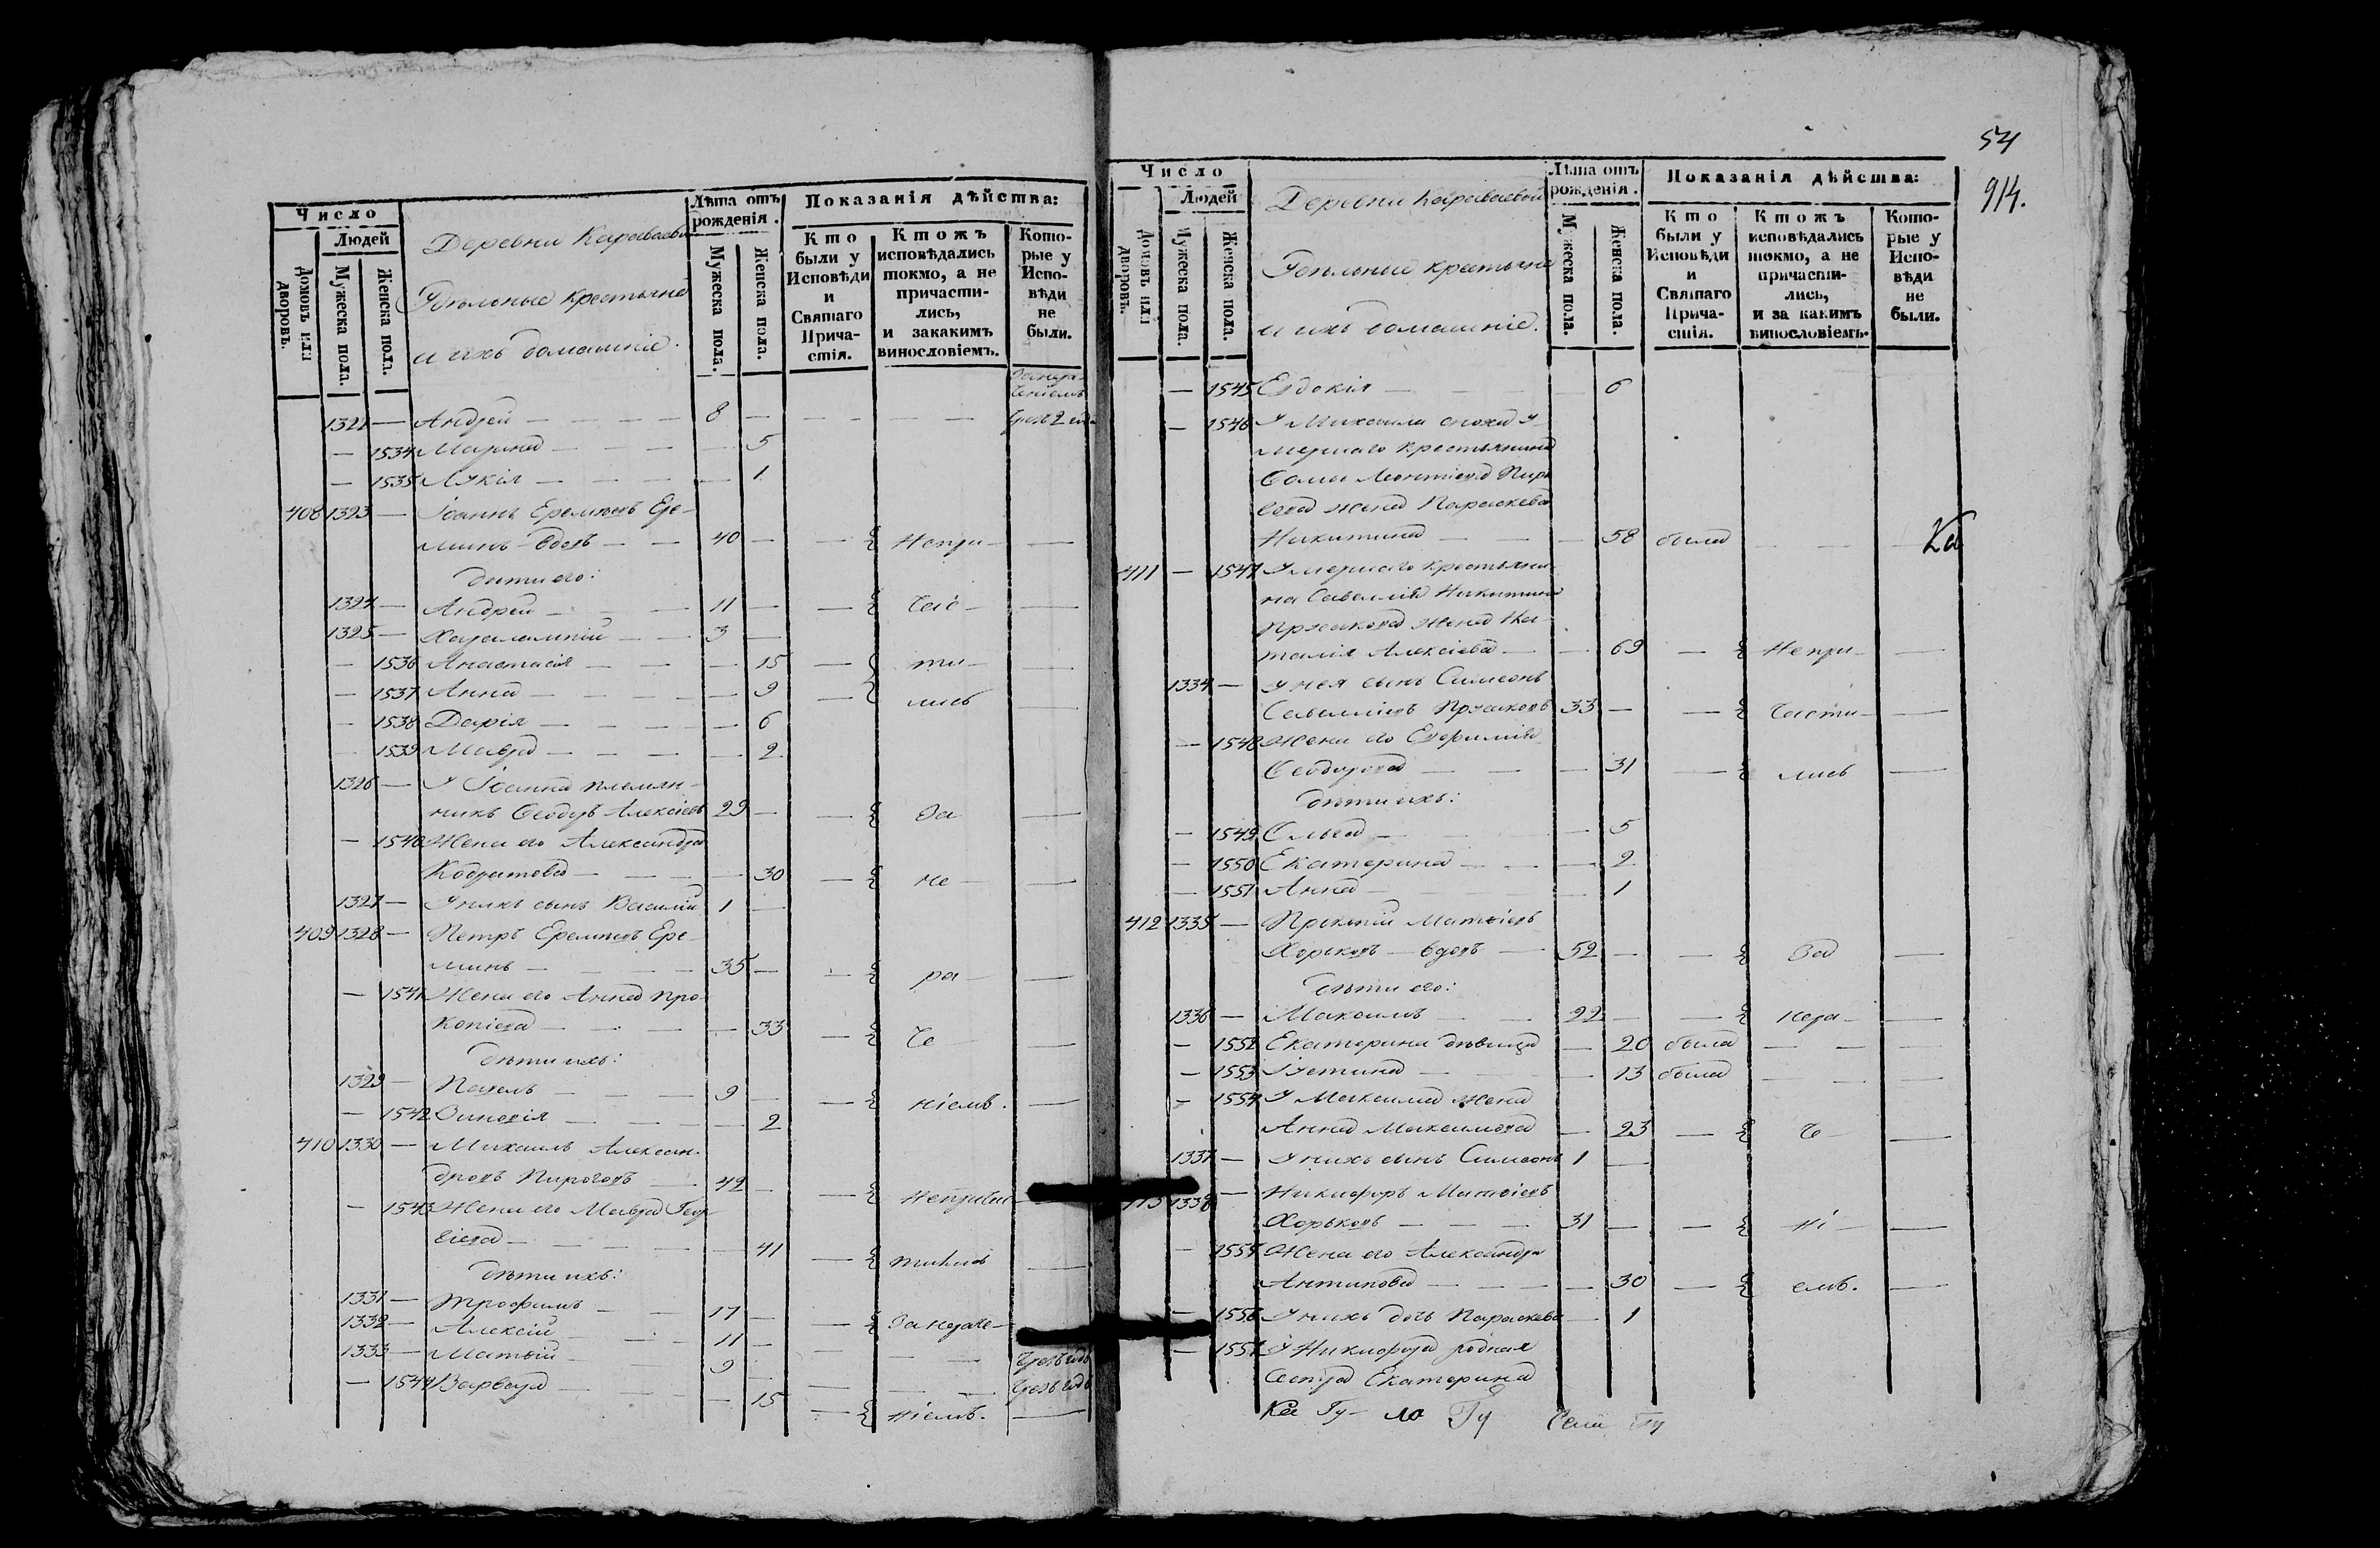 Число
Людей
Домовъ или дворовъ.
Мужеска пола.
Женска пола.
Деревни Караваевой
Удѣльные крестьяне
и ихъ домашніе.
Лѣта отъ рожденія.
Мужеска пола.
Женска пола.
Показанія дѣйства:
Кто были у Исповѣди и Святаго Причастія.
Ктожъ исповѣдались токмо, а не причастились, и закакимъ винословіемъ.
Которые у Исповѣди не были.
1322 — Андрей — 8 —
— 1534 Марина — 5
— 1535 Лукія — 1
408 1323 — Іоаннъ Еремѣевъ Ере-
минъ — вдовъ — 40 — Непри-
дѣти его:
1324 — Андрей — 11 — час-
1325 — Харалампій — 3 —
— 1536 Анастасія — 15 — ти-
— 1537 Анна — 9 — лись
— 1538 Дарія — 6
— 1539 Мавра — 2
1326 — У Іоанна племян-
никъ Ѳеодоръ Алексіевъ 29 — За
— 1540 Жена его Александра
Кодратова — 30 — не —
1327 — У нихъ сынъ Василій 1 —
409 1328 — Петръ Еремѣевъ Ере-
минъ — 35 — ра —
— 1541 Жена его Анна Про-
копіева — 33 — че —
дѣти ихъ:
1329 — Павелъ — 9 — ніемъ. —
— 1542 Зиновія — 2
410 1330 — Михаилъ Алексан-
дровъ Пироговъ — 42 —
— 1543 Жена его Мавра Геор-
гіева — 41 —
дѣти ихъ:
1331 — Трофимъ — 17 —
1332 — Алексій — 11 —
1333 — Матѳій — 9 —
— 1544 Варвара — 15 — ніемъ. —
54
914.
Число
Людей
Домовъ или дворовъ.
Мужеска пола.
Женска пола.
Деревни Караваевой
Удѣльные крестьяне
и ихъ домашніе.
Лѣта отъ рожденія.
Мужеска пола.
Женска пола.
Показанія дѣйства:
Кто были у Исповѣди и Святаго Причастія.
Ктожъ исповѣдались токмо, а не причастились, и за какимъ винословіемъ.
Которые у Исповѣди не были.
— 1545 Евдокія — 6
— 1546 У Михаила сноха у-
мершаго крестьянина
Леонтіева Пиро
гова жена Параскева
Никитина — 58 была
411 — 1547 Умершаго крестьяни-
на Савеллія Никитина
жена На-
талія Алексіева — 69 — Непри —
1334 — У нея сынъ Симеонъ
Савелліевъ 33 — части —
— 1548 Жена его Евфимія
Ѳеодорова — 31 — лись —
дѣти ихъ:
— 1549 Ольга — 5
— 1550 Екатерина — 2
— 1551 Анна — 1
412 1335 — Матѳіевъ
Хорьковъ — вдовъ — 52 — За —
дѣти его:
1336 — Максимъ — 22 — нера —
— 1552 Екатерина дѣвица — 20 была
— 1553 Іустина — 13 была
— 1554 У Максима жена
Анна Максимова — 23 — че —
1337 — У нихъ сынъ Симеонъ 1 —
1338 — Никифоръ Матѳіевъ
Хорьковъ — 31 — ні —
— 1555 Жена его Александра
Антипова — 30 — емъ. —
— 1556 У нихъ дочь Параскева 1
— 1557 У Никифора родная
сестра Екатерина